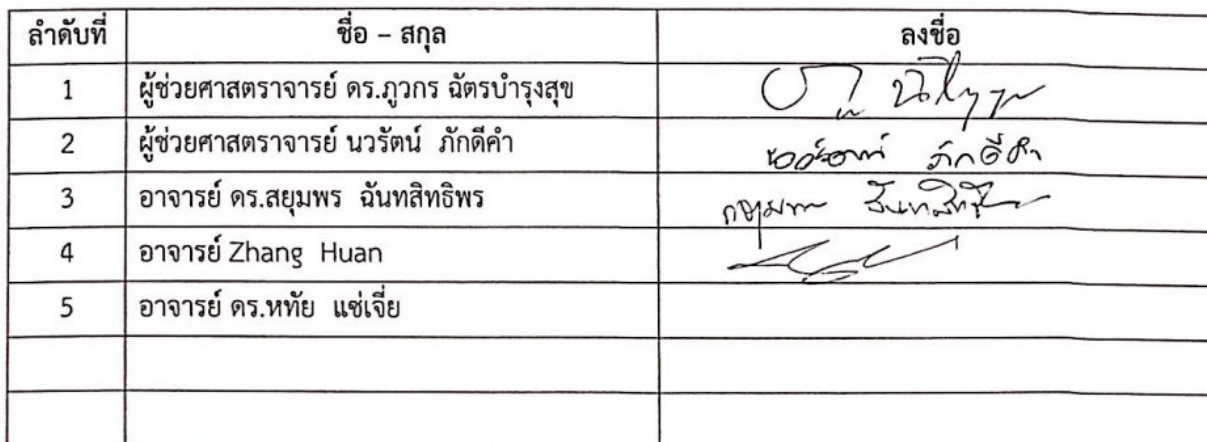 ลำดับที่ ชื่อ – สกุล ลงชื่อ
1 ผู้ช่วยศาสตราจารย์ ดร.ภูวกร ฉัตรบำรุงสุข
2 ผู้ช่วยศาสตราจารย์ นวรัตน์ ภักดีคำ ภักดีคำ
3 อาจารย์ ดร.สยุมพร ฉันทสิทธิพร
4 อาจารย์ Zhang Huan
5 อาจารย์ ดร.หทัย แซ่เจี่ย